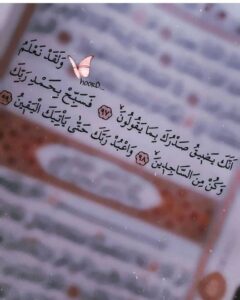 وَلَقَدْ نَعْلَمُ
HOORD_
اَنَّكَ يَضٖيقُ صَدْرُكَ بِمَا يَقُولُونَ ﴿٩٧﴾ فَسَبِّحْ بِحَمْدِ رَبِّكَ
وَكُنْ مِنَ السَّاجِدٖينَ ﴿٩٨﴾ وَاعْبُدْ رَبَّكَ حَتّٰى يَاْتِيَكَ الْيَقٖينُ ﴿٩٩﴾